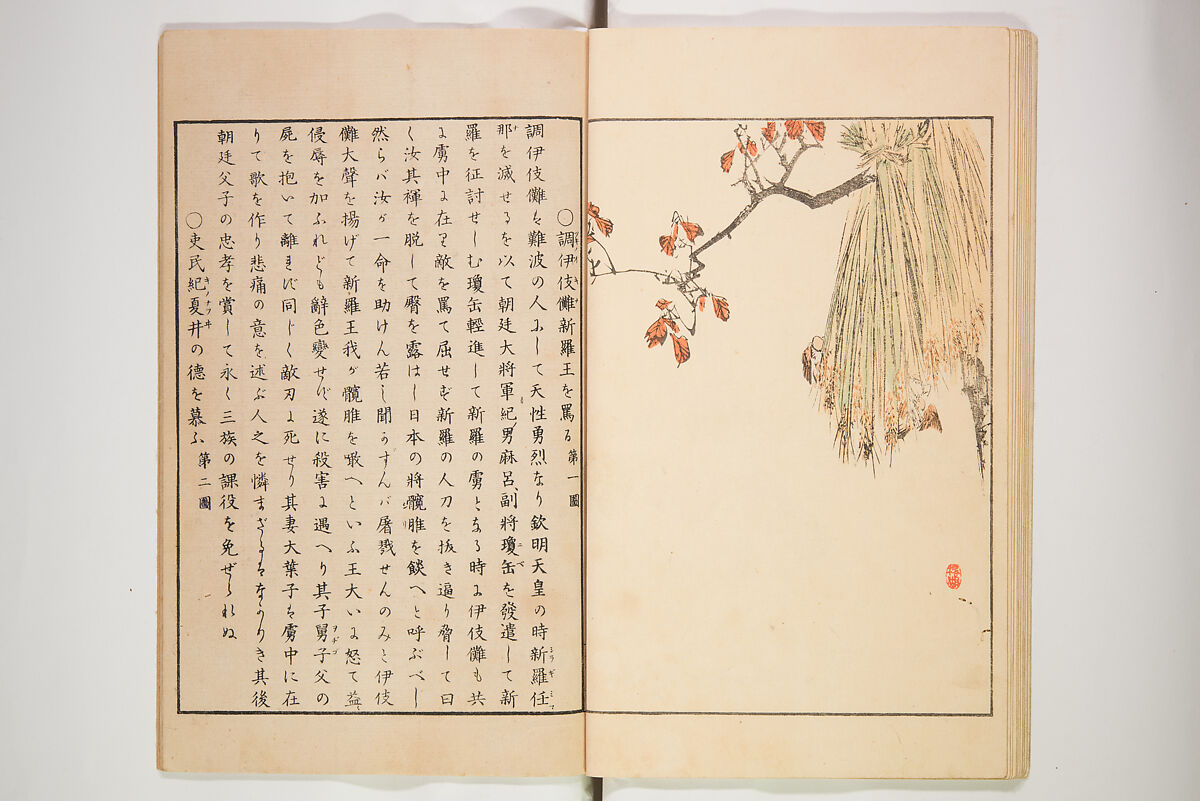 ○調伊伎儺新羅王を罵る 第一圖
調伊伎儺は難波の人にして天性勇烈なり欽明天皇の時新羅任
那を滅せるを以て朝廷大将軍紀男麻呂、副将瓊缶を發遣して新
羅を征討せしむ瓊缶輕進して新羅の虜となる時に伊伎儺も共
に虜中に在り敵を罵て屈せず新羅の人刀を抜き逼り脅して曰
く汝其褌を脱して臀を露はし日本の将髖脽を餤へと呼ぶべし
然らバ汝が一命を助けん若し聞かずんバ屠戮せんのみと伊伎
儺大聲を揚げて新羅王我が髖脽を噉へといふ王大いに怒て益〻
侵辱を加ふれども辭色變せず遂に殺害に遇へり其子舅子父の
屍を抱いて離まず同じく敵刃に死せり其妻大葉子は虜中に在
りて歌を作り悲痛の意を述ぶ人之を憐まざるはなかりき其後
朝廷父子の忠孝を賞して永く三族の課役を免ぜられぬ
○吏民紀夏井の徳を慕ふ 第二圖